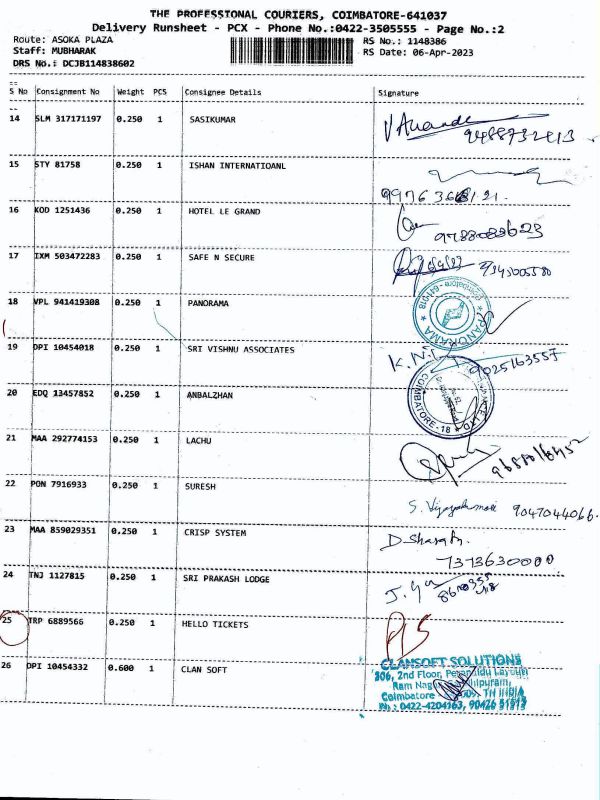 THE PROFESSIONAL COURIERS, COIMBATORE-641037
Delivery Runsheet - PCX - Phone No.:0422-3505555 - Page No.:2
Route: ASOKA PLAZA
RS No.: 1148386
Staff: MUBHARAK
RS Date: 06-Apr-2023
DRS No.: DCJB114838602
S No Consignment No Weight PCS Consignee Details Signature
14 SLM 317171197 0.250 1 SASIKUMAR
15 STY 81758 0.250 1 ISHAN INTERNATIOANL
16 KOD 1251436 0.250 1 HOTEL LE GRAND
17 IXM 503472283 0.250 1 SAFE N SECURE
18 VPL 941419308 0.250 1 PANORAMA
PANORAMA
Coimbatore - 641018
19 DPI 10454018 0.250 1 SRI VISHNU ASSOCIATES
9025163557
20 EDQ 13457852 0.250 1 ANBALZHAN
COIMBATORE-18
21 MAA 292774153 0.250 1 LACHU
22 PON 7916933 0.250 1 SURESH
9047044066
23 MAA 859029351 0.250 1 CRISP SYSTEM
7373630000
24 TNJ 1127815 0.250 1 SRI PRAKASH LODGE
25 TRP 6889566 0.250 1 HELLO TICKETS
26 DPI 10454332 0.600 1 CLAN SOFT
CLANSOFT SOLUTIONS
306, 2nd Floor,
Ram Nagar
Coimbatore TN INDIA
Ph : 0422-4204163, 90426 51913